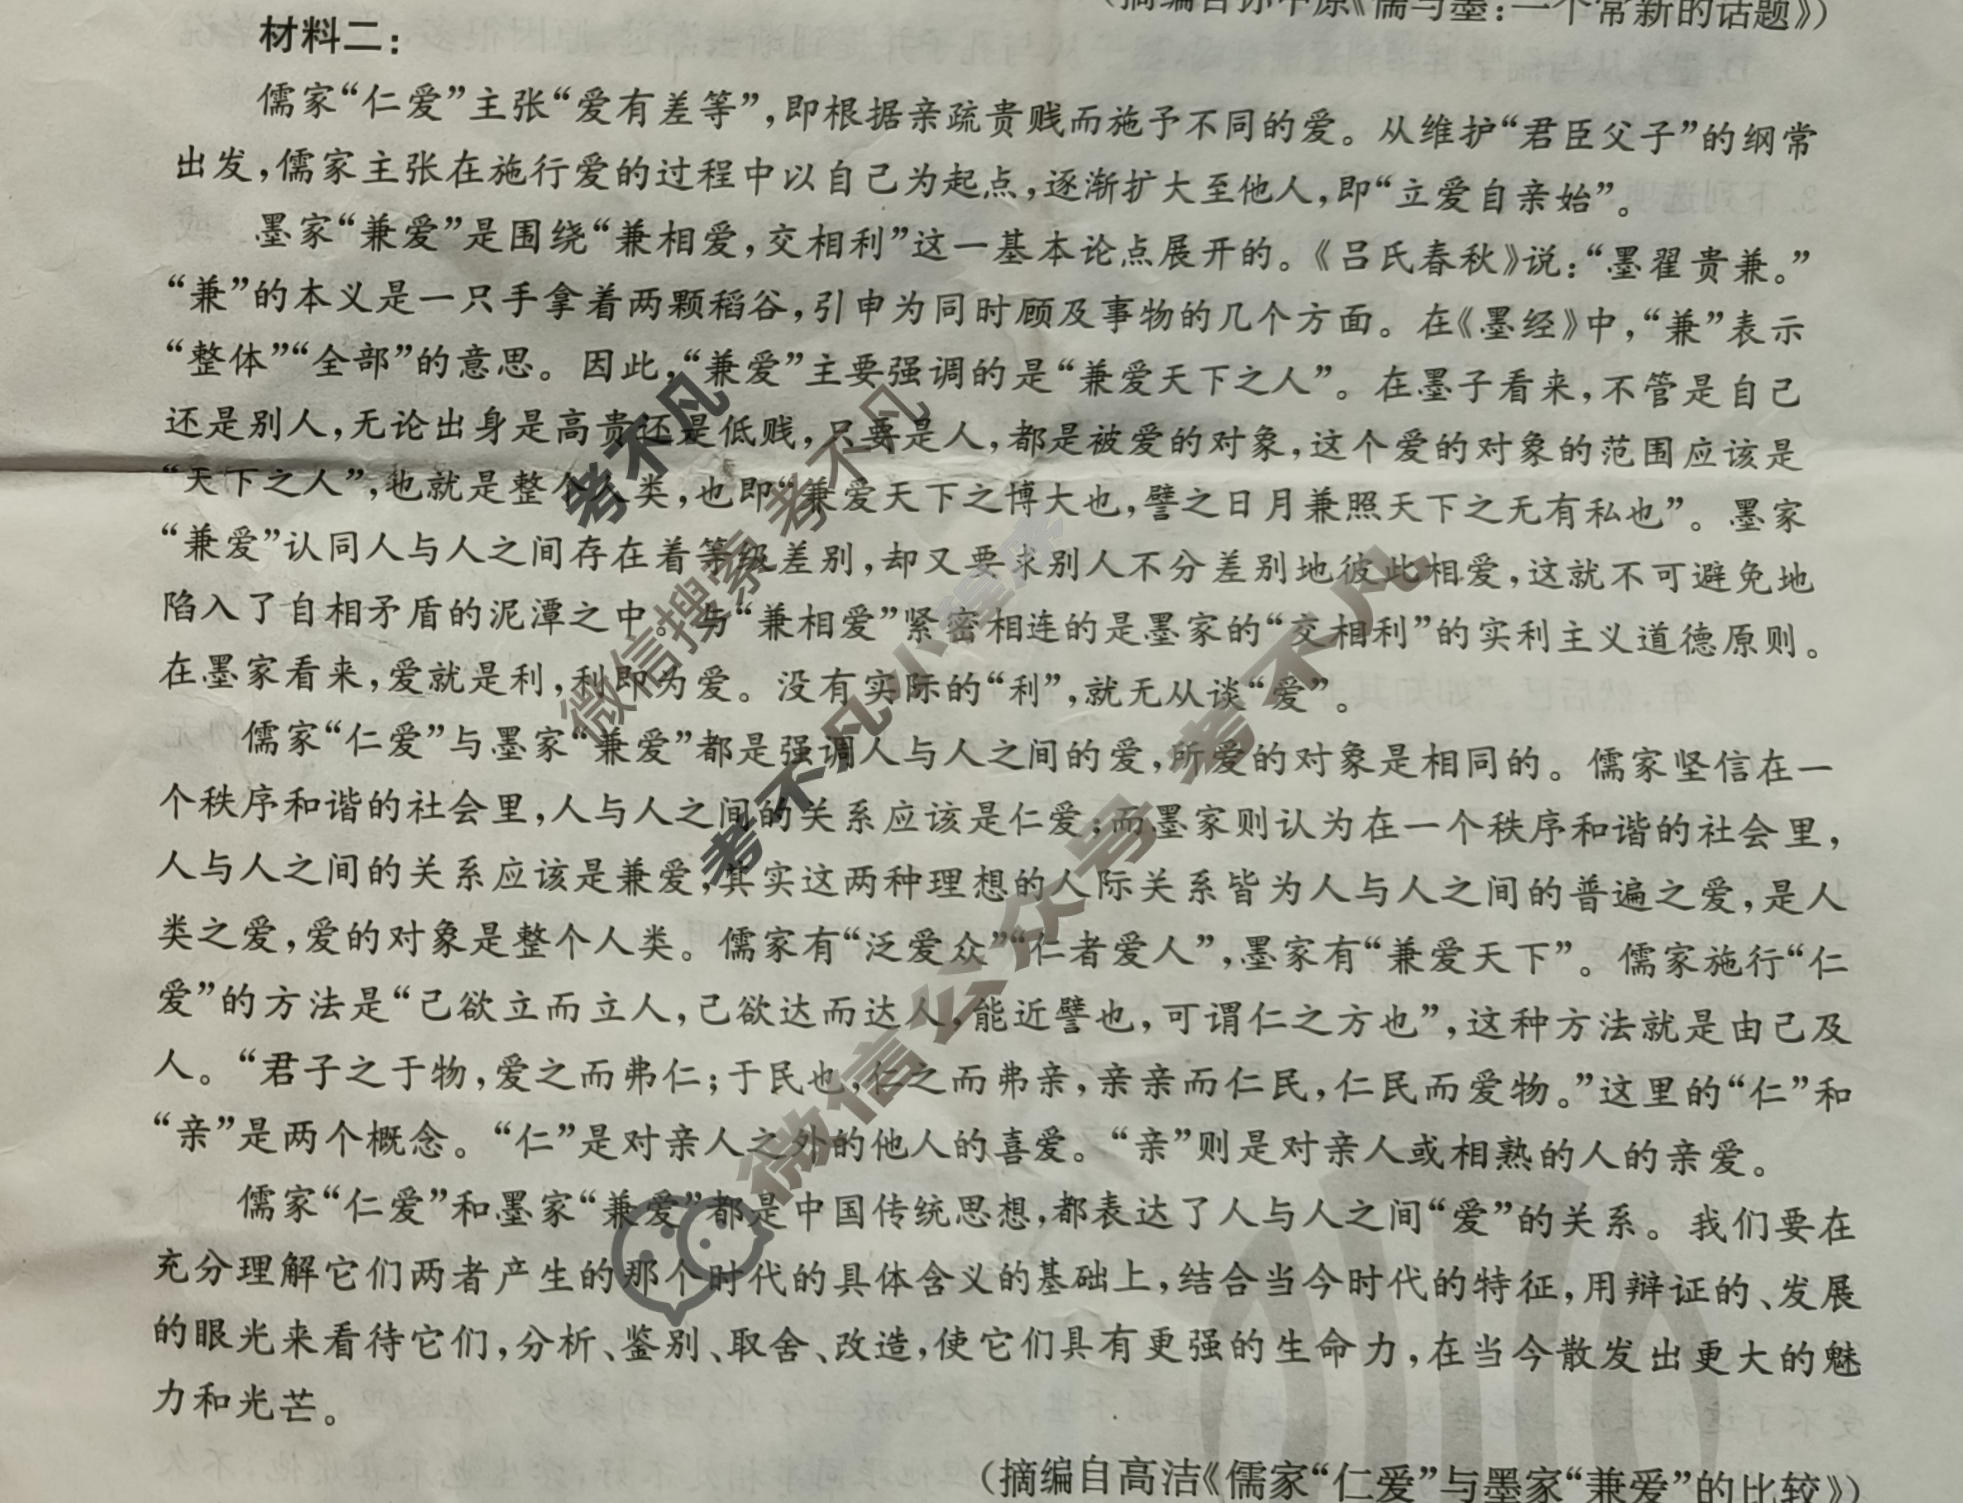 (摘编自孙中原《儒与墨:一个常新的话题》)
材料二:
儒家“仁爱”主张“爱有差等”,即根据亲疏贵贱而施予不同的爱。从维护“君臣父子”的纲常
出发,儒家主张在施行爱的过程中以自己为起点,逐渐扩大至他人,即“立爱自亲始”。
墨家“兼爱”是围绕“兼相爱,交相利”这一基本论点展开的。《吕氏春秋》说:“墨翟贵兼。”
“兼”的本义是一只手拿着两颗稻谷,引申为同时顾及事物的几个方面。在《墨经》中,“兼”表示
“整体”“全部”的意思。因此,“兼爱”主要强调的是“兼爱天下之人”。在墨子看来,不管是自己
还是别人,无论出身是高贵还是低贱,只要是人,都是被爱的对象,这个爱的对象的范围应该是
“天下之人”,也就是整个人类,也即“兼爱天下之博大也,譬之日月兼照天下之无有私也”。墨家
“兼爱”认同人与人之间存在着等级差别,却又要求别人不分差别地彼此相爱,这就不可避免地
陷入了自相矛盾的泥潭之中。与“兼相爱”紧密相连的是墨家的“交相利”的实利主义道德原则。
在墨家看来,爱就是利,利即为爱。没有实际的“利”,就无从谈“爱”。
儒家“仁爱”与墨家“兼爱”都是强调人与人之间的爱,所爱的对象是相同的。儒家坚信在一
个秩序和谐的社会里,人与人之间的关系应该是仁爱;而墨家则认为在一个秩序和谐的社会里,
人与人之间的关系应该是兼爱,其实这两种理想的人际关系皆为人与人之间的普遍之爱,是人
类之爱,爱的对象是整个人类。儒家有“泛爱众”“仁者爱人”,墨家有“兼爱天下”。儒家施行“仁
爱”的方法是“己欲立而立人,己欲达而达人,能近譬也,可谓仁之方也”,这种方法就是由己及
人。“君子之于物,爱之而弗仁;于民也,仁之而弗亲,亲亲而仁民,仁民而爱物。”这里的“仁”和
“亲”是两个概念。“仁”是对亲人之外的他人的喜爱。“亲”则是对亲人或相熟的人的亲爱。
儒家“仁爱”和墨家“兼爱”都是中国传统思想,都表达了人与人之间“爱”的关系。我们要在
充分理解它们两者产生的那个时代的具体含义的基础上,结合当今时代的特征,用辩证的、发展
的眼光来看待它们,分析、鉴别、取舍、改造,使它们具有更强的生命力,在当今散发出更大的魅
力和光芒。
(摘编自高洁《儒家“仁爱”与墨家“兼爱”的比较》)
考不凡
微信搜索 考不凡
考不凡小程序
微信公众号 考不凡